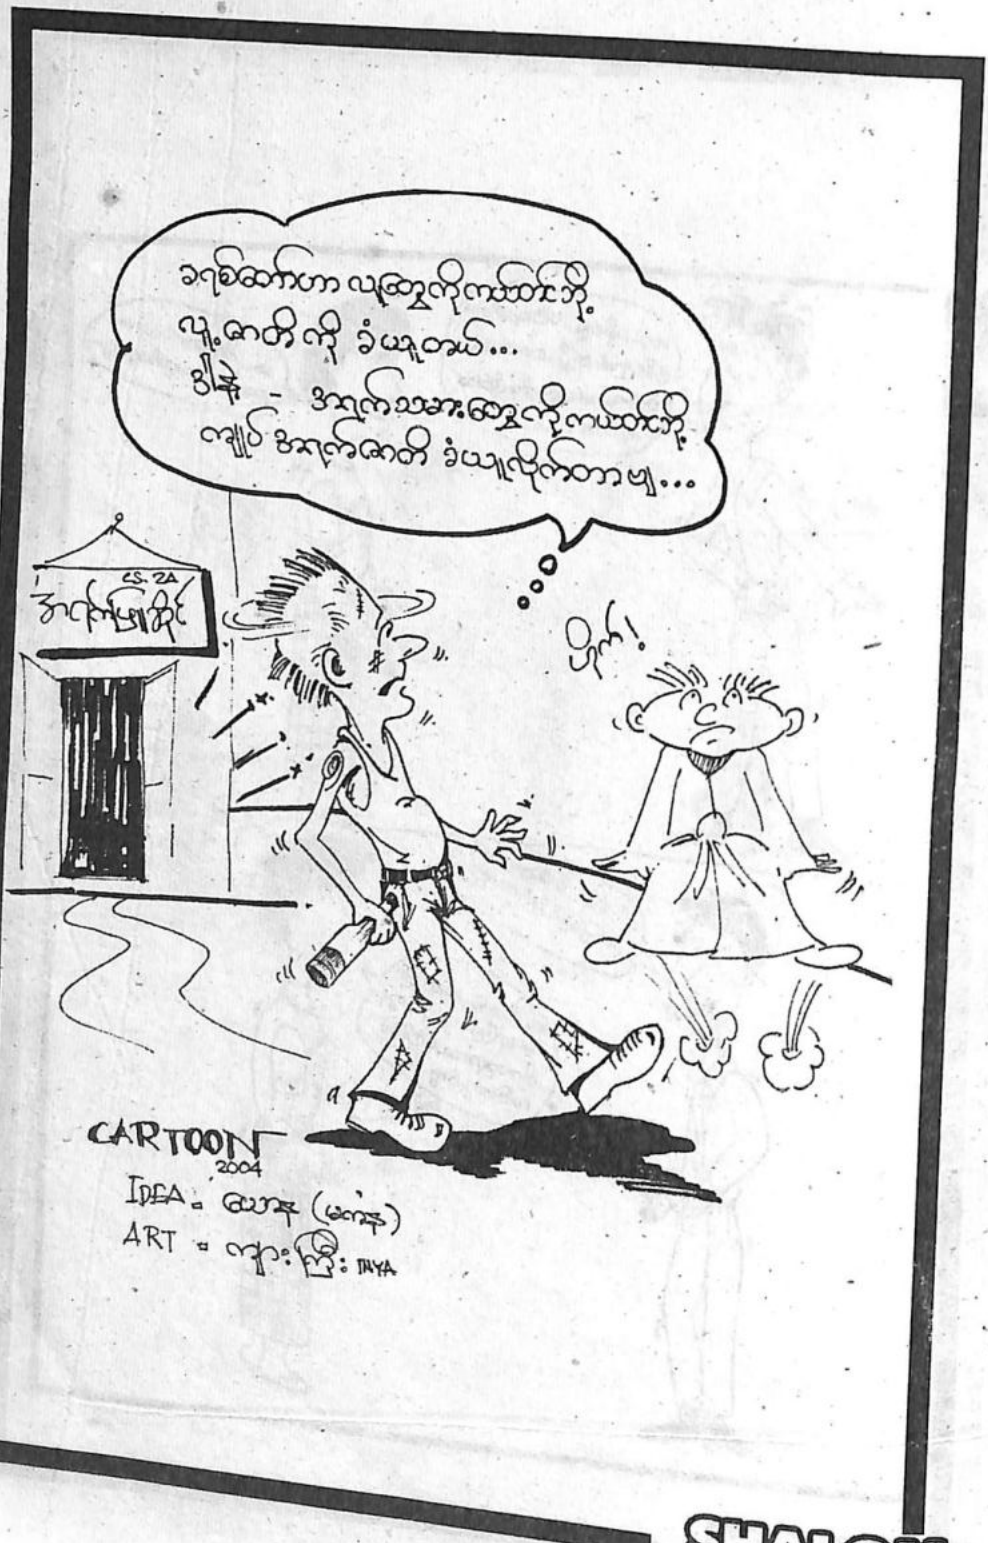 ခရစ်တော်ဟာ လူတွေကိုကယ်တင်ဘို့
လူ့ဇာတိ ကို ခံယူတယ်...
ဒါနဲ့ - အရက်သမားတွေကိုကယ်တင်ဘို့
ကျုပ် အရက်ဇာတိ ခံယူလိုက်တာဗျ...
CS. 2A
အရက်ဖြူဆိုင်
ဟိုက်!
CARTOON
2004
IDEA = ယောန (မကန)
ART = ကျားကြီး INYA
SHALOM